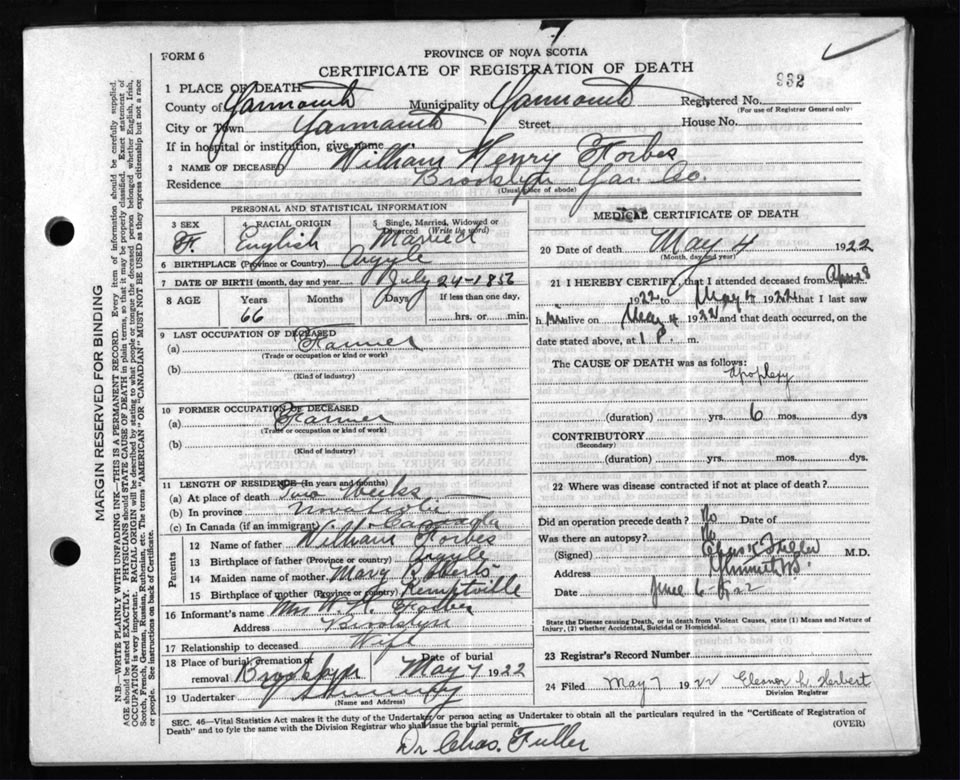 7
FORM 6
PROVINCE OF NOVA SCOTIA
CERTIFICATE OF REGISTRATION OF DEATH
932
1 PLACE OF DEATH
County of Yarmouth Municipality of Yarmouth Registered No.
(For use of Registrar General only)
City or Town Yarmouth Street House No.
If in hospital or institution, give name
2 NAME OF DECEASED William Henry Forbes
Residence Brooklyn Yar. Co.
(Usual place of abode)
PERSONAL AND STATISTICAL INFORMATION
3 SEX 4 RACIAL ORIGIN 5 Single, Married, Widowed or Divorced (Write the word)
English Married
6 BIRTHPLACE (Province or Country) Argyle
7 DATE OF BIRTH (month, day and year) July 24-1856
8 AGE Years Months Days If less than one day,
66 hrs. or min.
9 LAST OCCUPATION OF DECEASED
(a) Farmer
(Trade or occupation or kind or work)
(b)
(Kind of industry)
10 FORMER OCCUPATION OF DECEASED
(a) Farmer
(Trade or occupation or kind of work)
(b)
(Kind of industry)
11 LENGTH OF RESIDENCE (In years and months)
(a) At place of death Two Weeks
(b) In province Nova Scotia
(c) In Canada (if an immigrant) Canada
Parents
12 Name of father William Forbes
13 Birthplace of father (Province or country) Argyle
14 Maiden name of mother Mary Roberts
15 Birthplace of mother (Province or country) Kemptville
16 Informant's name Mrs W. H. Forbes
Address Brooklyn
17 Relationship to deceased Wife
18 Place of burial, cremation or removal Brooklyn Date of burial May 7 1922
19 Undertaker
(Name and Address)
MEDICAL CERTIFICATE OF DEATH
20 Date of death May 4 1922
(Month, day and year)
21 I HEREBY CERTIFY, that I attended deceased from
1922 to May 4 1922 that I last saw
h im alive on May 4 1922 and that death occurred, on
date stated above, at 1 P. m.
The CAUSE OF DEATH was as follows:
Apoplexy
(duration) yrs. 6 mos. dys
CONTRIBUTORY
(Secondary)
(duration) yrs. mos. dys
22 Where was disease contracted if not at place of death?
Did an operation precede death? No Date of
Was there an autopsy? No
(Signed) Chas K Fuller M.D.
Address Yarmouth N.S.
Date June 6
State the Disease causing Death, or in death from Violent Causes, state (1) Means and Nature of Injury, (2) whether Accidental, Suicidal or Homicidal.
23 Registrar's Record Number
24 Filed May 7 1922 Eleanor L. Herbert
Division Registrar
SEC. 46—Vital Statistics Act makes it the duty of the Undertaker or person acting as Undertaker to obtain all the particulars required in the "Certificate of Registration of
Death" and to fyle the same with the Division Registrar who shall issue the burial permit.
(OVER)
Dr Chas. Fuller
MARGIN RESERVED FOR BINDING
N.B. WRITE PLAINLY WITH UNFADING INK—THIS IS A PERMANENT RECORD. Every item of information should be carefully supplied.
AGE should be stated EXACTLY. PHYSICIANS should STATE CAUSE OF DEATH in plain terms, so that it may be properly classified. Exact statement of
OCCUPATION is very important. RACIAL ORIGIN will be described by stating to what people or tongue the deceased person belonged whether English, Irish,
Scotch, French, German, Russian, Ruthenian, etc. The terms "AMERICAN" or "CANADIAN" MUST NOT BE USED as they express citizenship but not a race
or people. See instructions on back of Certificate.